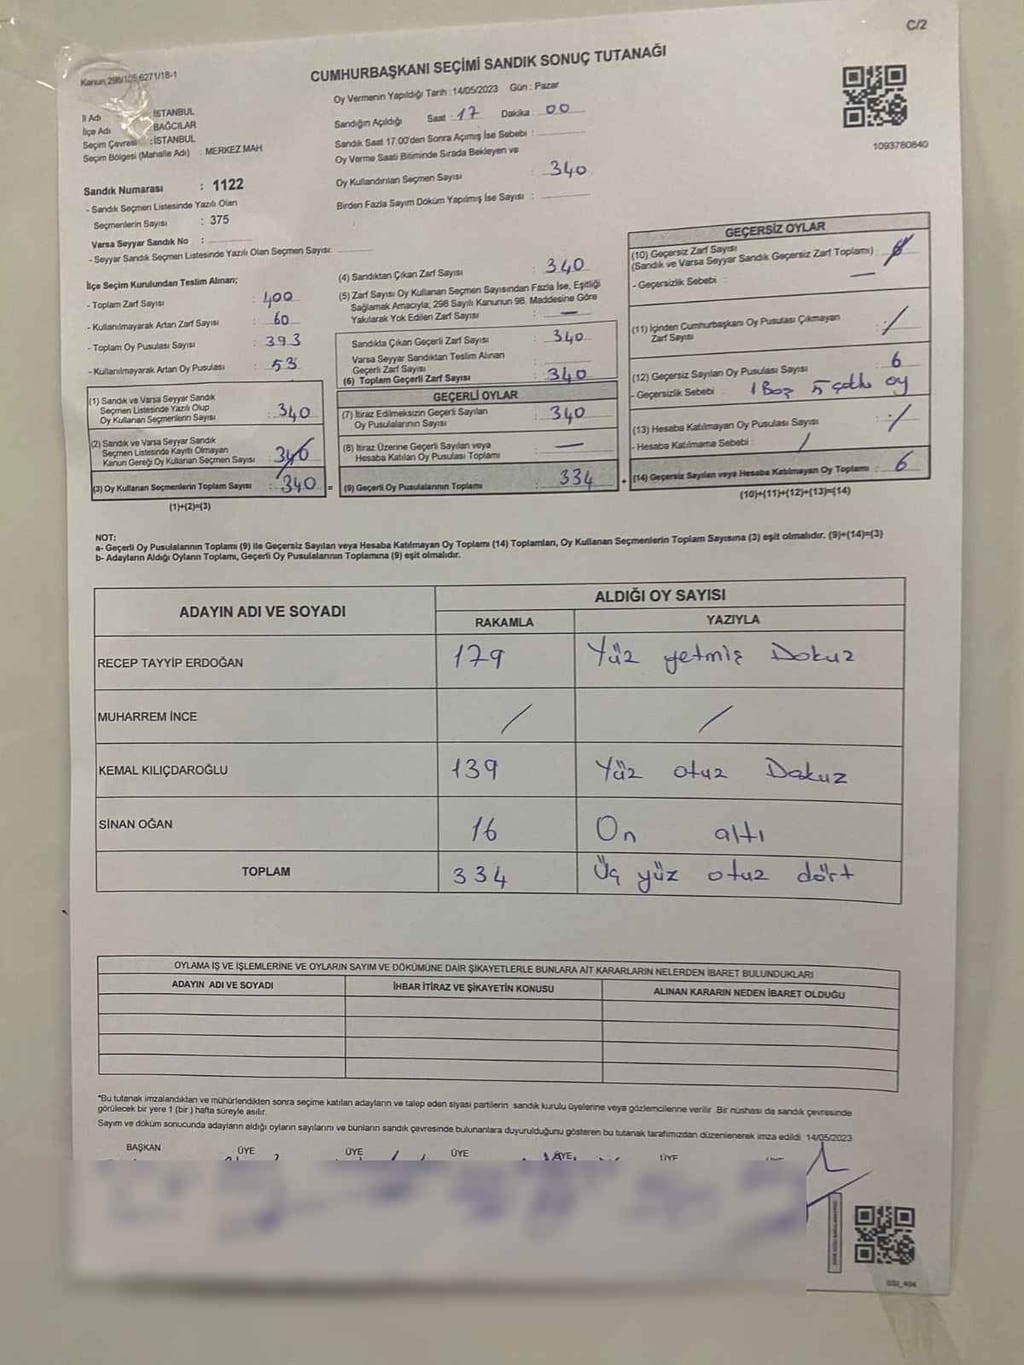 C/2
Kanun 298/105,6271/18-1
CUMHURBAŞKANI SEÇİMİ SANDIK SONUÇ TUTANAĞI
Oy Vermenin Yapıldığı Tarih : 14/05/2023 Gün : Pazar
İl Adı : İSTANBUL
İlçe Adı : BAĞCILAR
Seçim Çevresi : İSTANBUL
Seçim Bölgesi (Mahalle Adı) : MERKEZ MAH
Sandığın Açıldığı Saat : 17 Dakika : 00
Sandık Saat 17:00'den Sonra Açılmış İse Sebebi :
Oy Verme Saati Bitiminde Sırada Bekleyen ve
Oy Kullandırılan Seçmen Sayısı : 340
Birden Fazla Sayım Döküm Yapılmış İse Sayısı :
1093780840
Sandık Numarası : 1122
- Sandık Seçmen Listesinde Yazılı Olan
Seçmenlerin Sayısı : 375
Varsa Seyyar Sandık No :
- Seyyar Sandık Seçmen Listesinde Yazılı Olan Seçmen Sayısı:
İlçe Seçim Kurulundan Teslim Alınan;
- Toplam Zarf Sayısı : 400
- Kullanılmayarak Artan Zarf Sayısı : 60
- Toplam Oy Pusulası Sayısı : 393
- Kullanılmayarak Artan Oy Pusulası : 53
(1) Sandık ve Varsa Seyyar Sandık
Seçmen Listesinde Yazılı Olup
Oy Kullanan Seçmenlerin Sayısı : 340
(2) Sandık ve Varsa Seyyar Sandık
Seçmen Listesinde Kayıtlı Olmayan
Kanun Gereği Oy Kullanan Seçmen Sayısı :
(3) Oy Kullanan Seçmenlerin Toplam Sayısı : 340
(1)+(2)=(3)
(4) Sandıktan Çıkan Zarf Sayısı : 340
(5) Zarf Sayısı Oy Kullanan Seçmen Sayısından Fazla İse, Eşitliği
Sağlamak Amacıyla; 298 Sayılı Kanunun 98. Maddesine Göre
Yakılarak Yok Edilen Zarf Sayısı : —
Sandıkta Çıkan Geçerli Zarf Sayısı : 340
Varsa Seyyar Sandıktan Teslim Alınan
Geçerli Zarf Sayısı :
(6) Toplam Geçerli Zarf Sayısı : 340
GEÇERLİ OYLAR
(7) İtiraz Edilmeksizin Geçerli Sayılan
Oy Pusulalarının Sayısı : 340
(8) İtiraz Üzerine Geçerli Sayılan veya
Hesaba Katılan Oy Pusulası Toplamı : —
= (9) Geçerli Oy Pusulalarının Toplamı : 334 +
GEÇERSİZ OYLAR
(10) Geçersiz Zarf Sayısı
(Sandık ve Varsa Seyyar Sandık Geçersiz Zarf Toplamı) :
- Geçersizlik Sebebi : —
(11) İçinden Cumhurbaşkanı Oy Pusulası Çıkmayan
Zarf Sayısı : /
(12) Geçersiz Sayılan Oy Pusulası Sayısı : 6
- Geçersizlik Sebebi : 1 Boş 5 çoklu oy
(13) Hesaba Katılmayan Oy Pusulası Sayısı : /
- Hesaba Katılmama Sebebi : /
(14) Geçersiz Sayılan veya Hesaba Katılmayan Oy Toplamı : 6
(10)+(11)+(12)+(13)=(14)
NOT:
a- Geçerli Oy Pusulalarının Toplamı (9) ile Geçersiz Sayılan veya Hesaba Katılmayan Oy Toplamı (14) Toplamları, Oy Kullanan Seçmenlerin Toplam Sayısına (3) eşit olmalıdır. (9)+(14)=(3)
b- Adayların Aldığı Oyların Toplamı, Geçerli Oy Pusulalarının Toplamına (9) eşit olmalıdır.
ADAYIN ADI VE SOYADI ALDIĞI OY SAYISI
RAKAMLA YAZIYLA
RECEP TAYYİP ERDOĞAN 179 Yüz yetmiş Dokuz
MUHARREM İNCE / /
KEMAL KILIÇDAROĞLU 139 Yüz otuz Dokuz
SİNAN OĞAN 16 On altı
TOPLAM 334 Üç yüz otuz dört
OYLAMA İŞ VE İŞLEMLERİNE VE OYLARIN SAYIM VE DÖKÜMÜNE DAİR ŞİKAYETLERLE BUNLARA AİT KARARLARIN NELERDEN İBARET BULUNDUKLARI
ADAYIN ADI VE SOYADI İHBAR İTİRAZ VE ŞİKAYETİN KONUSU ALINAN KARARIN NEDEN İBARET OLDUĞU
*Bu tutanak imzalandıktan ve mühürlendikten sonra seçime katılan adayların ve talep eden siyasi partilerin sandık kurulu üyelerine veya gözlemcilerine verilir. Bir nüshası da sandık çevresinde
görülecek bir yere 1 (bir) hafta süreyle asılır.
Sayım ve döküm sonucunda adayların aldığı oyların sayılarını ve bunların sandık çevresinde bulunanlara duyurulduğunu gösteren bu tutanak tarafımızdan düzenlenerek imza edildi. 14/05/2023
BAŞKAN ÜYE ÜYE ÜYE ÜYE ÜYE